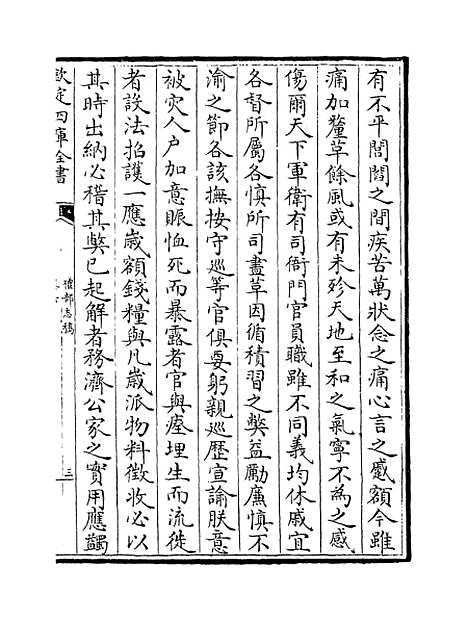 有不平閭閻之間疾苦萬狀念之痛心言之蹙額今雖
痛加釐草餘風或有未殄天地至和之氣寧不為之感
傷爾天下軍衛有司衙門官員職雖不同義均休戚宜
各督所屬各慎所司盡草因循積習之獘益勵廉慎不
渝之節各該撫按守巡等官俱要躬親巡歷宣諭朕意
被灾人户加意賑恤死而暴露者官與瘞埋生而流徙
者設法招䕶一應歲額錢糧與凡歲派物料徵收必以
其時出納必稽其獘已起解者務濟公家之實用應蠲
欽定四庫全書
禮部志稿
三